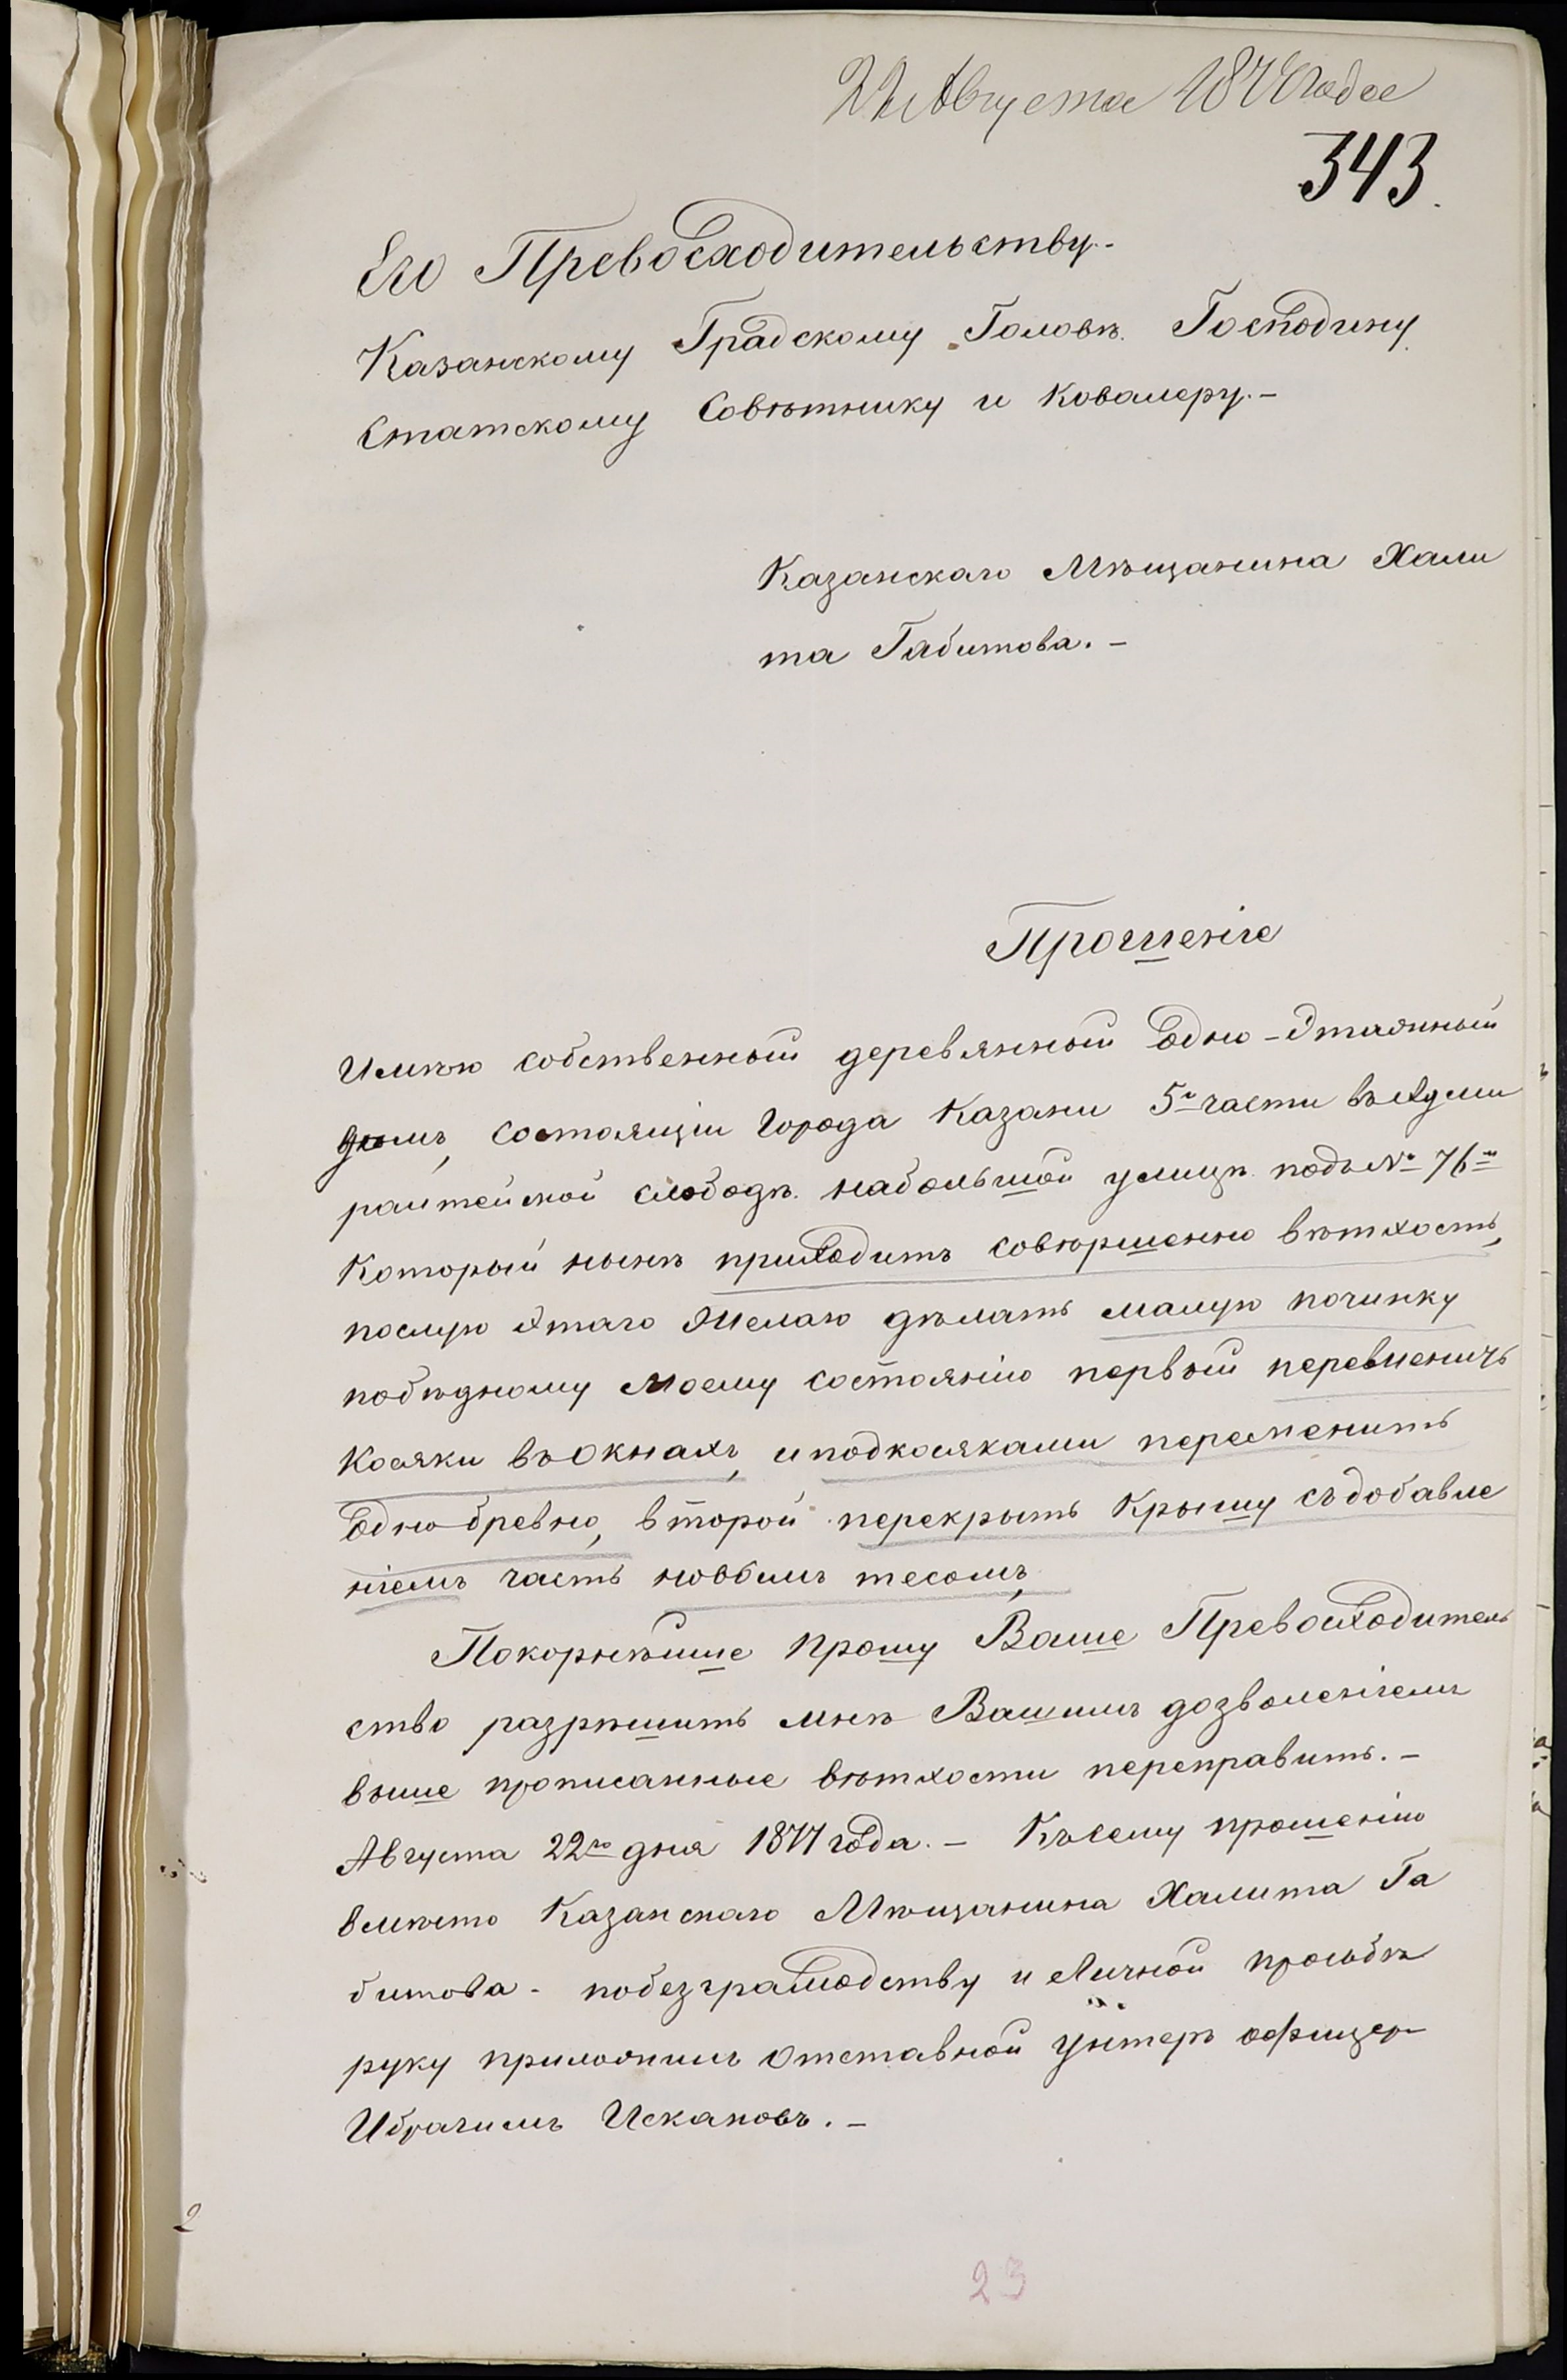 22 Августа 1877 года
343.
Его Превосходительству.-
Казанскому Градскому Головѣ Господину
Статскому Совѣтнику и Ковалеру.-
Казанскаго Мѣщанина Хали
та Габитова.-
Прошеніе
Имѣю собственный деревянный одно-этажный
домъ, состоящіи города Казани 5й части въ Адми
ралтейской слободѣ на большой улицѣ подъ № 76м
который нынѣ приходитъ совѣршенно вѣтхость,
послую этаго Желаю дѣлать малую починку
побѣдному Моему состоянію первый перевменить
косяки въ окнахъ, и подкосяками переменить
одно бревно, второй перекрыть Крышу съ добавле
ніемъ часть новвымъ тесомъ,
Покорнѣйше прошу Ваше Превосходитель
ство разрѣшить мнѣ Вашимъ дозволеніемъ
выше прописанные вѣтхости переправить.-
Августа 22го дня 1877 года.- Къ сему прошенію
вмѣсто Казанскаго Мѣщанина Халита Га
битова- побезграмодству и Личной прозьбѣ
руку приложилъ Отставной унтеръ офицер
Ибрагимъ Искаковъ.-
2
23